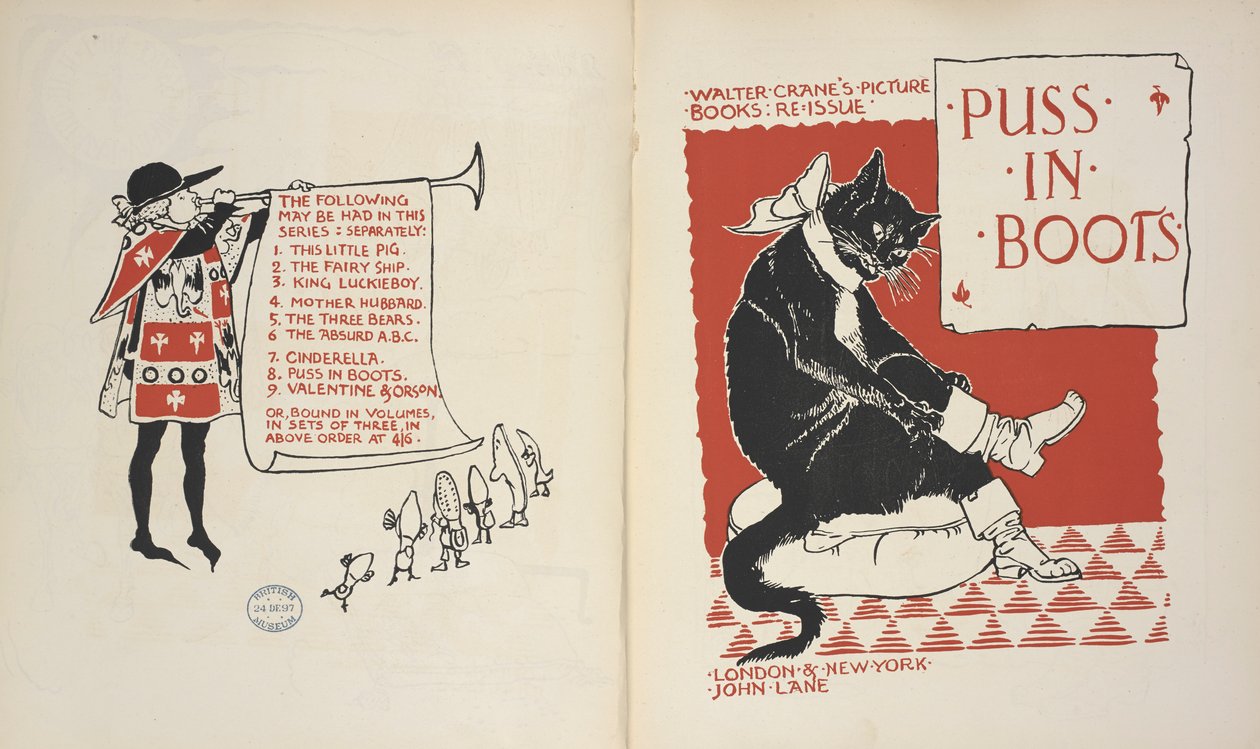 THE FOLLOWING
MAY BE HAD IN THIS
SERIES : SEPARATELY:
1. THIS LITTLE PIG.
2. THE FAIRY SHIP.
3. KING LUCKIEBOY.
4. MOTHER HUBBARD.
5. THE THREE BEARS.
6 THE ABSURD A.B.C.
7. CINDERELLA.
8. PUSS IN BOOTS.
9. VALENTINE & ORSON.
OR, BOUND IN VOLUMES,
IN SETS OF THREE, IN
ABOVE ORDER AT 4/6.
BRITISH
24 DE97
MUSEUM
·WALTER·CRANE'S·PICTURE
·BOOKS: RE=ISSUE·
·PUSS·
·IN·
·BOOTS·
·LONDON·&·NEW·YORK·
·JOHN·LANE